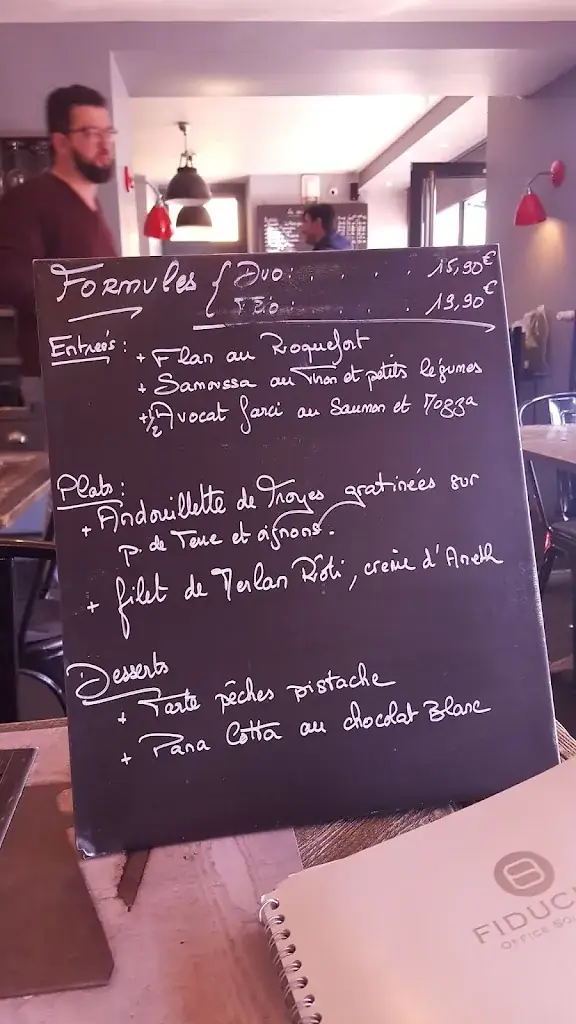 Formules { Duo: . . . . . 15,90€
Trio . . . . . 19,90€
Entrées :
+ Flan au Roquefort
+ Samoussa au Thon et petits légumes
+ 1/2 Avocat farci au Saumon et Mozza
Plats :
+ Andouillette de Troyes gratinées sur
p. de Terre et oignons.
+ filet de Merlan Rôti, crème d'Aneth
Desserts
+ Tarte pêches pistache
+ Pana Cotta au chocolat Blanc
FIDUCI
OFFICE